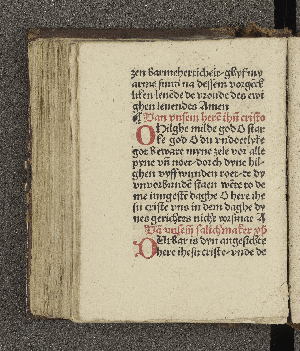 zen barmherticheit ghyf my
arme sund na dessem vorgeck
liken leuēde de vroude des ewi
ghen leuendes Amen
Van vnsem herē ihū cristo
O Hilghe milde god O star
ke god O du vndoetlyke
got beware myne zele vor alle
pyne vn̄ noet dorch dyne hil
ghen vyff wunden
vnuorbundē staen
me iungestē daghe O here ihe
su criste vns in dem daghe dy
nes gerichtes nicht
Vā vnsem salichmaker
O is dyn angesichte
here ihesu criste vnde de